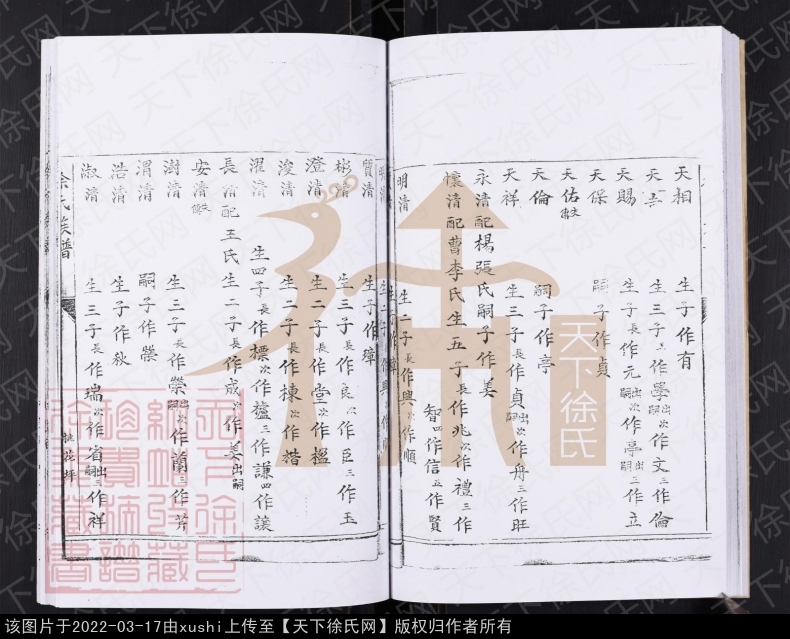 天相 生子作有
天 生三子長作學出嗣次作文三作倫
天賜 生子長作元出嗣次作亭出嗣三作立
天保 嗣子作貞
天佑失傳
天倫 嗣子作亭
天祥 生三子長作貞出嗣次作舟三作旺
永清配楊張氏嗣子作美
懷清配曹李氏生五子長作兆次作禮三作
智四作信五作賢
明清 生二子長作興次作順
質清 生子作璋
彬清 生三子長作良次作臣三作玉
澄清 生二子長作堂次作楹
浚清 生二子長作棟次作楷
濯清 生四子長作標次作楹三作謙四作讓
長清配王氏生二子長作成次作美出嗣
安清失傳
澍清 生三子長作榮出嗣次作蘭三作芳
渭清 嗣子作榮
浩清 生子作秋
淑清 生三子長作瑞次作省出嗣三作祥
徐氏族譜
桃花坪
徐
天下徐氏
天下徐氏网
该图片于2022-03-17由xushi上传至【天下徐氏网】版权归作者所有